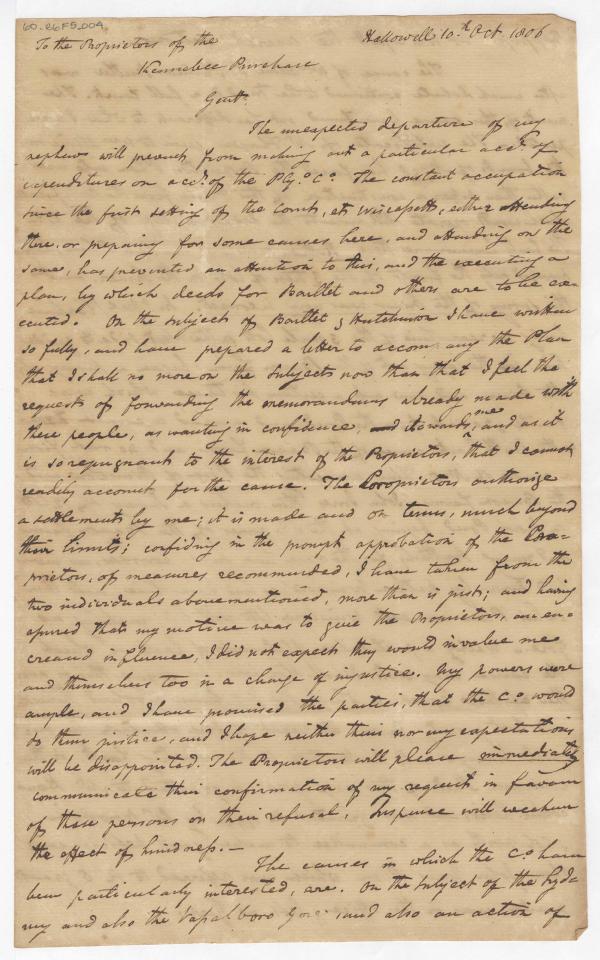 60.26F5_004
To the Proprietors of the Hallowell 10th Oct 1806
Kennebec Purchase
Gentn.
The unexpected departure of my
nephew will prevent from making out a particular acct. of
expenditures on acct. of the Co. The constant occupation
since the first setting of the Court, at Wiscassett, either attending
there, or preparing for some causes here, and attending on the
same, has prevented an attention to this, and the executing a
plan, by which deeds for Bartlet and others are to be exe-
cuted. On the subject of Bartlet & Hutchinson I have written
so fully, and have prepared a letter to accompany the Plan
that I shall no more on the subjects now than that I feel the
requests of forwarding the memorandums already made with
these people, as wanting in confidence, towards me, and as it
is so repugnant to the interest of the Proprietors, that I cannot
readily account for the cause. The Proprietors authorize
a settlements by me; it is made and on terms, much beyond
their limits; confiding in the prompt approbation of the Pro-
prietors, of measures recommended, I have taken from the
two individuals abovementioned, more than is just; and having
assured that my motive was to give the Proprietors, an en-
creased influence, I did not expect they would involve me
and themselves too in a charge of injustice. My powers were
ample, and I have promised the parties, that the Co. would
do them justice, and I hope neither their nor my expectations
will be disappointed. The Proprietors will please immediately
communicate their confirmation of my request in favour
of these persons or their refusal. Suspence will weaken
the effect of kindness. —
The causes in which the Co. have
been particularly interested, are. On the subject of the
and also the Vassalboro Gore, and also an action of